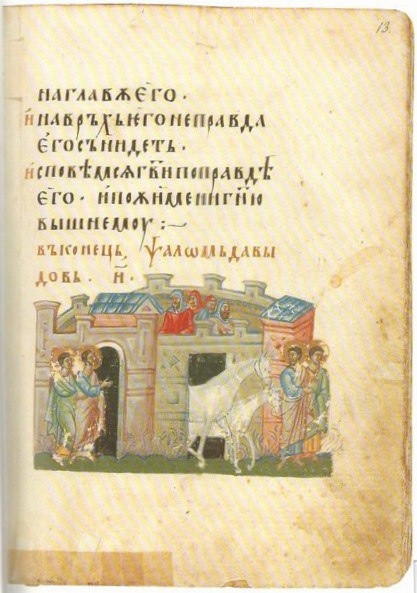 13.
НАГЛАВѪЄГО·
И҆НАВРЪХЪЮГОНЕПРАВДА
ЄГОСЪНИДЕТЬ·
И҆СПОВѢМСѦГВ҃ИПОПРАВДѢ
ЄГО· И҆ПОѪИМЕНИГН҃Ю
ВЫШНЕМОУ:~
ВЪКОНЕЦЬ ѰАЛѠМЬДАВЫ
ДОВЬ· Н҃·